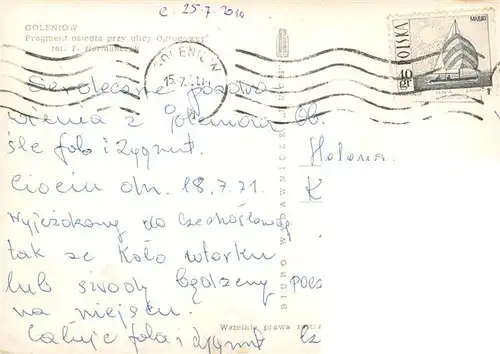 e 25-7.2010
GOLENIÓW
Fragment osiedla przy ulicy Ogrodowej
fot. Z. Hermańczuk
GOLENIÓW
15.7.
MAŁKO
POLSKA
40 gr
Serdeczne pozdro-
wienia z Goleniowa Ob.
śle Jola i Zygmunt.
Helena
Ciociu dn. 18.7.71. K
Wyjeżdżamy do Czechosłowacji
tak że koło wtorku
lub środy będziemy
na miejscu.
Całuje Jola i Zygmunt
Wszelkie prawa zastrz
BIURO WYDAWNICZE